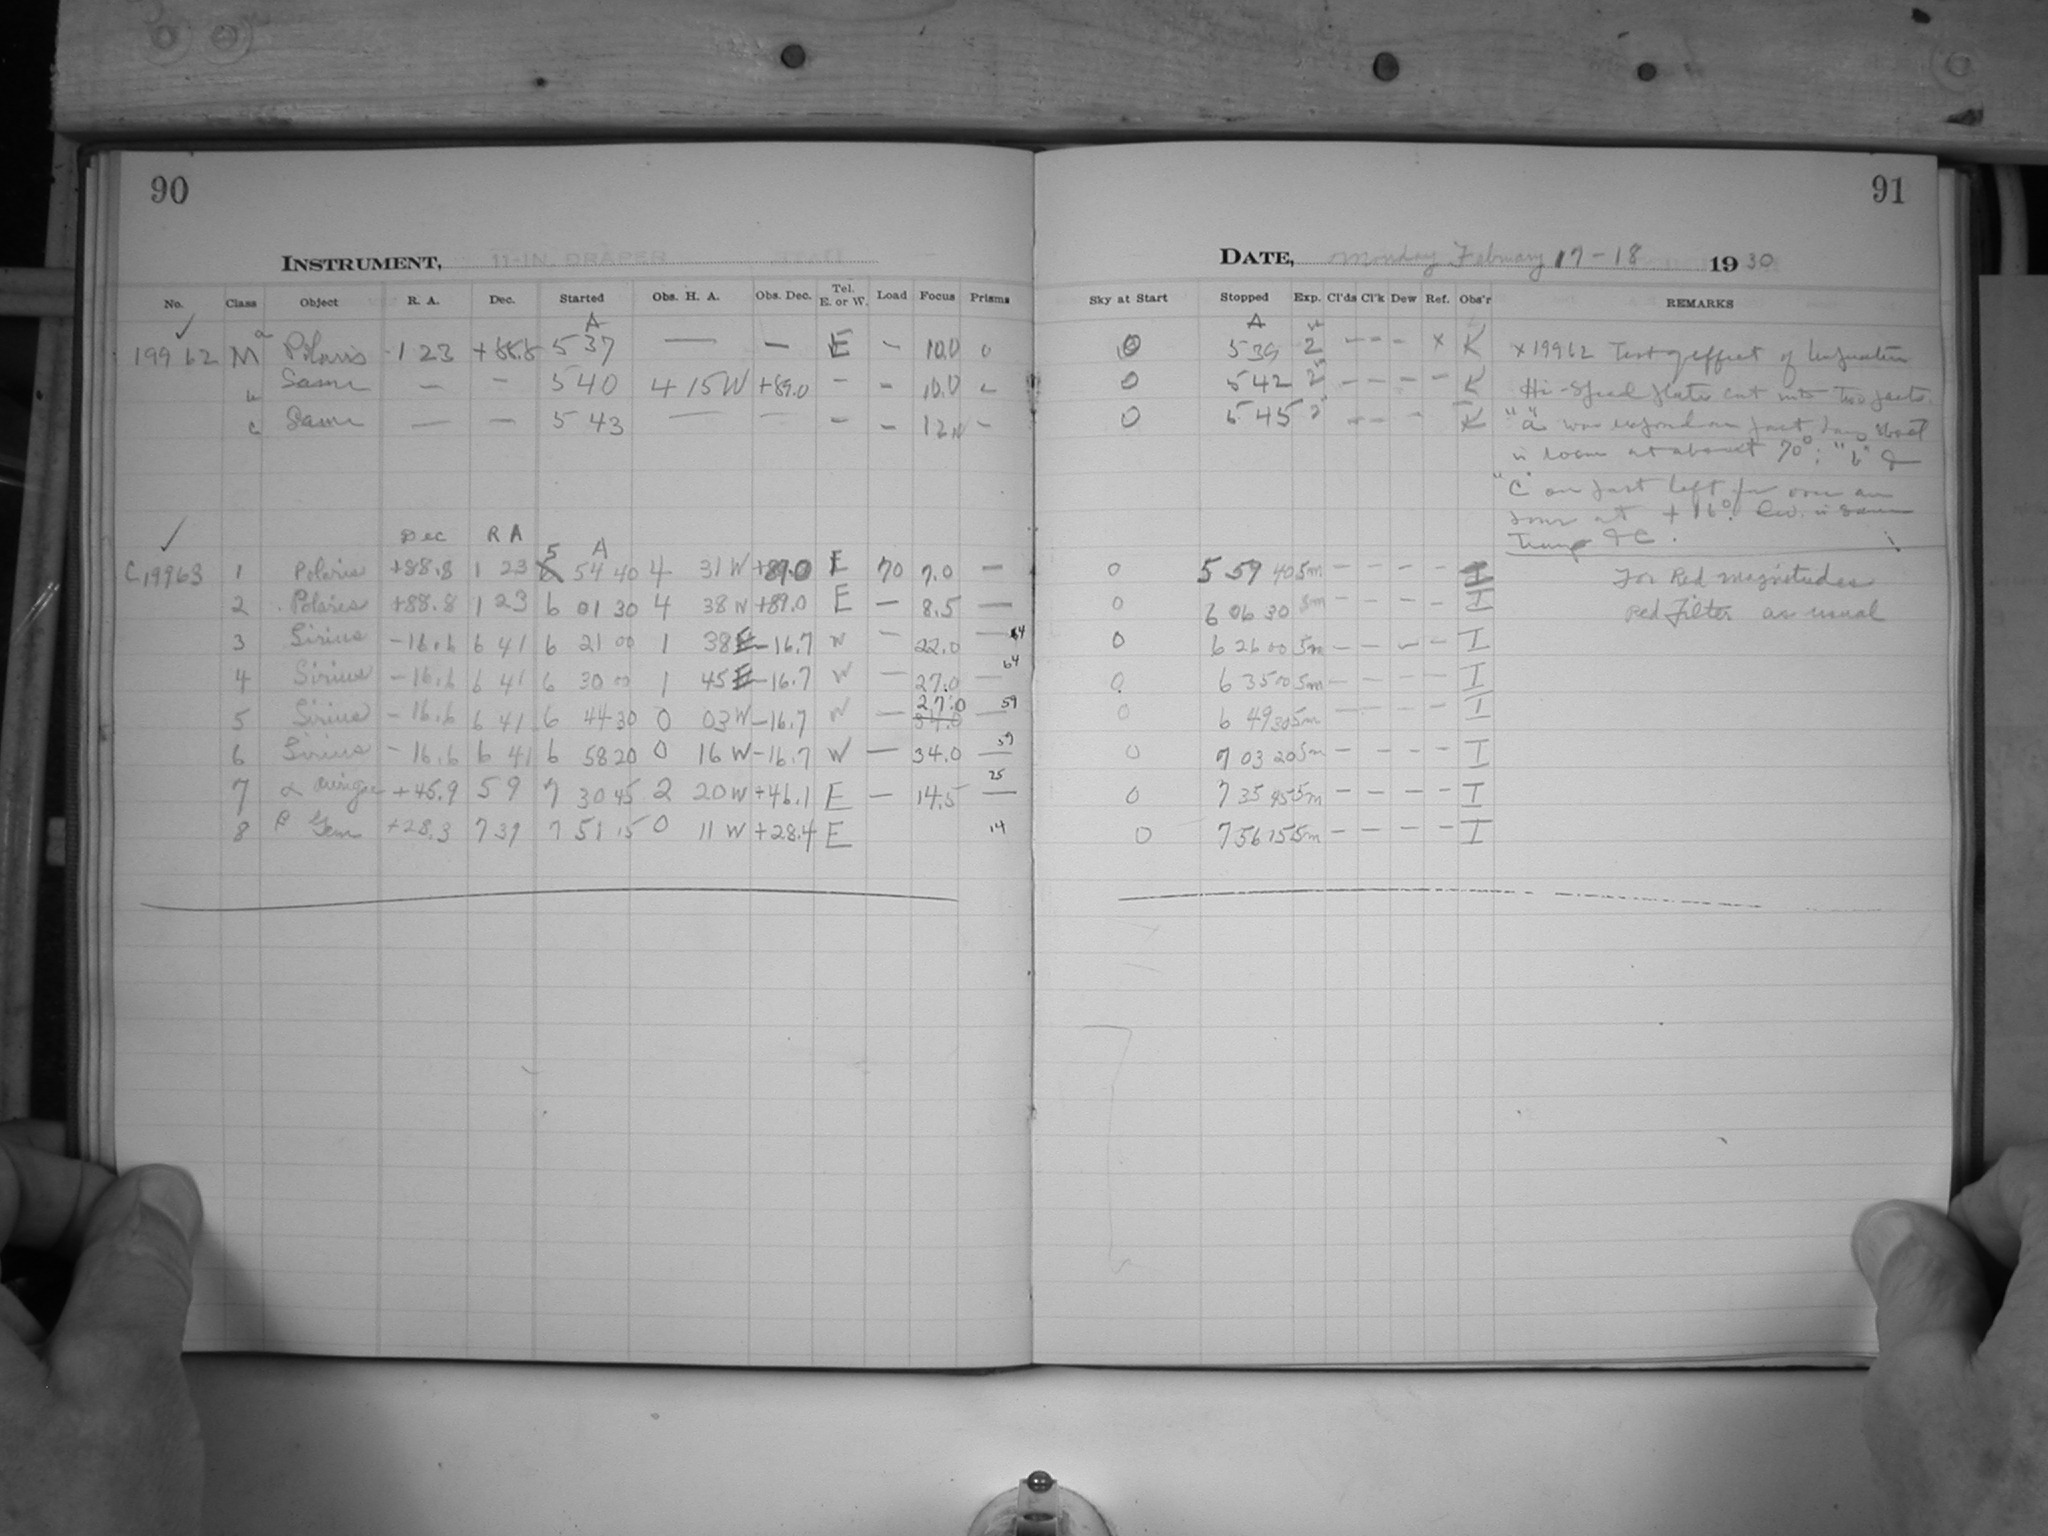 90
INSTRUMENT, 11-IN. DRAPER
No. Class Object R. A. Dec. Started Obs. H. A. Obs. Dec. Tel. E. or W. Load Focus Prisms
A
19962 M a Polaris 1 23 +88.8 5 37 — — E - 10.0 0
b Same — - 5 40 4 15 W +89.0 - - 10.0 -
c Same — — 5 43 — — - - 12.0 -
Dec R A
C19963 1 Polaris +88.8 1 23 5 A 54 40 4 31 W +89.0 E 70 7.0 —
2 Polaris +88.8 1 23 6 01 30 4 38 W +89.0 E — 8.5 —
3 Sirius -16.6 6 41 6 21 00 1 38 E -16.7 W — 22.0 — 64
4 Sirius -16.6 6 41 6 30 00 1 45 E -16.7 W — 27.0 — 64
5 Sirius -16.6 6 41 6 44 30 0 03 W -16.7 W — 27.0 34.0 — 59
6 Sirius -16.6 6 41 6 58 20 0 16 W -16.7 W — 34.0 — 59
7 α Aurigae +45.9 5 9 7 30 45 2 20 W +46.1 E — 14.5 — 25
8 β Gem +28.3 7 39 7 51 15 0 11 W +28.4 E 14
91
DATE, Monday February 17-18 1930
Sky at Start Stopped Exp. Cl'ds Cl'k Dew Ref. Obs'r REMARKS
A
0 5 39 2 - - - x K x 19962 Test of effect of
0 5 42 2 - - - - K Hi-Speed plates cut into two parts.
0 5 45 2 - - - K "a" was exposed
in room at about 70°; "b" &
"c" on last left for over an
hour at +16°. Dev. in same
&c.
0 5 59 40 5m - - - - I For Red magnitudes
0 6 06 30 5m - - - - I Red Filter as usual
0 6 26 00 5m - - - - I
0 6 35 00 5m - - - - I
0 6 49 30 5m - - - - I
0 7 03 20 5m - - - - I
0 7 35 45 5m - - - - I
0 7 56 15 5m - - - - I